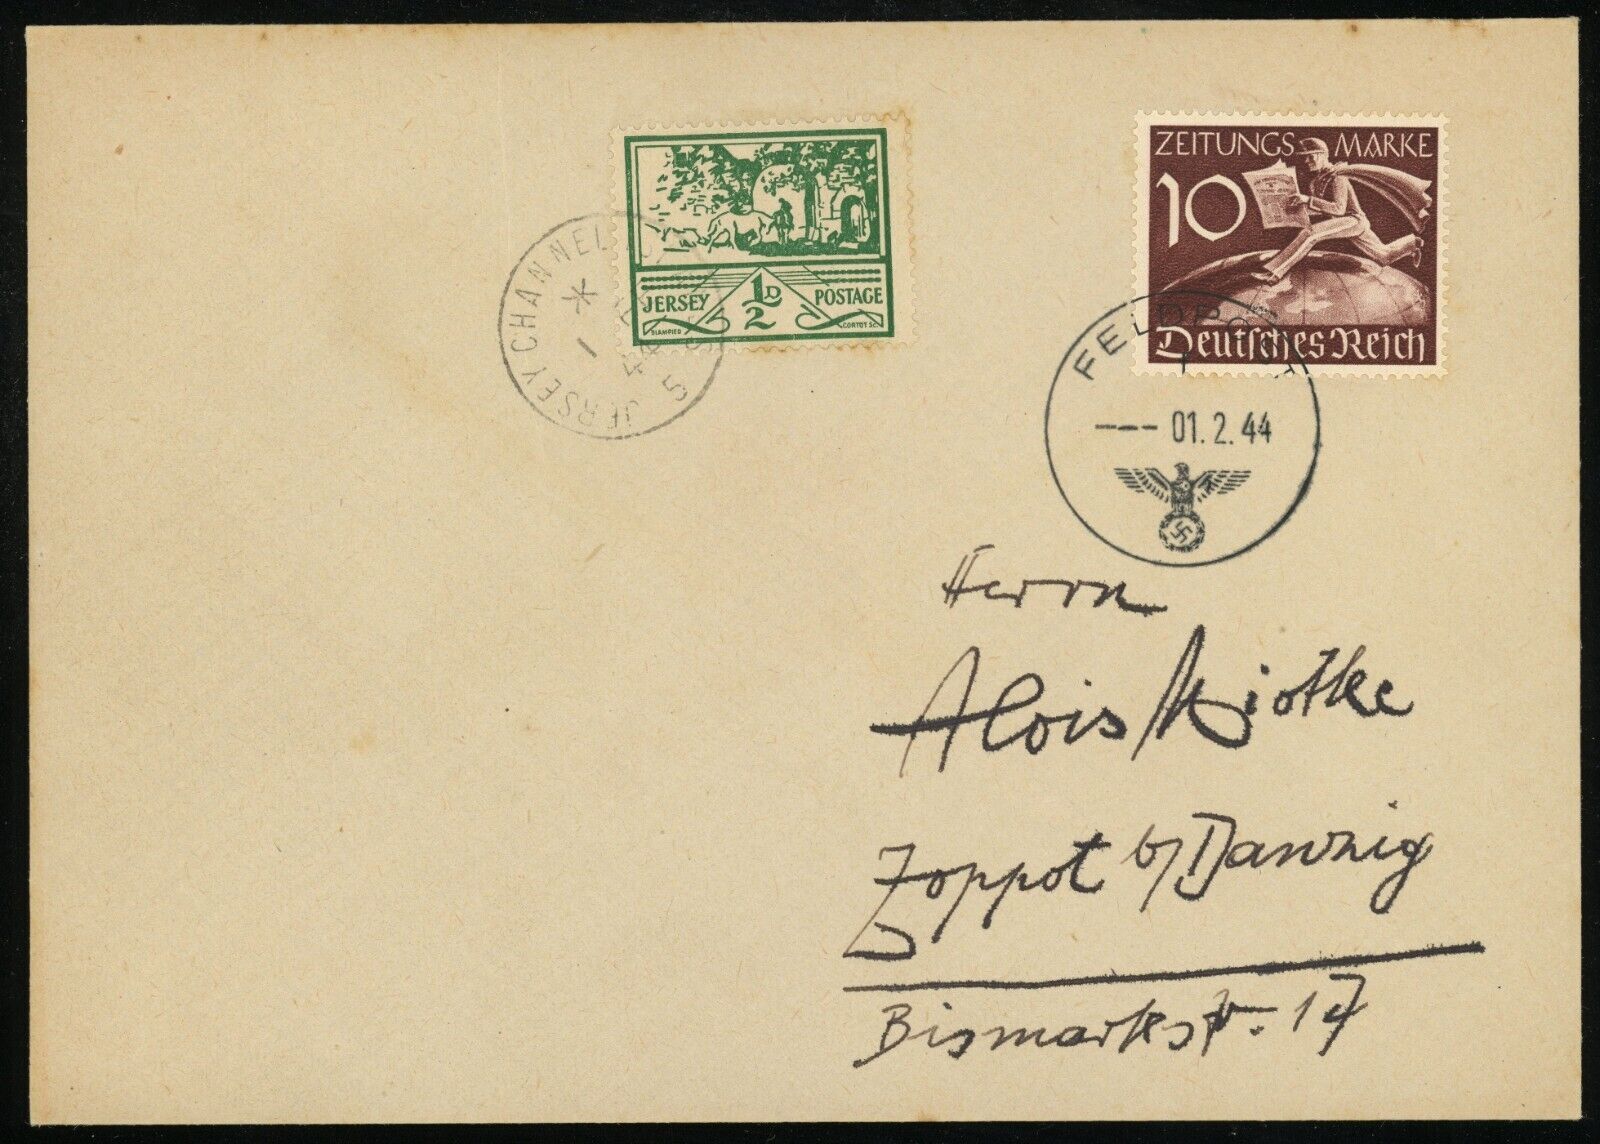 JERSEY POSTAGE
½D
BLAMPIED CORTOT SC.
JERSEY CHANNEL
1
44
5
ZEITUNGS MARKE
10
Deutsches Reich
FELDPOST
--- 01.2.44
Herrn
Alois Miotke
Zoppot b/Danzig
Bismarkstr. 17